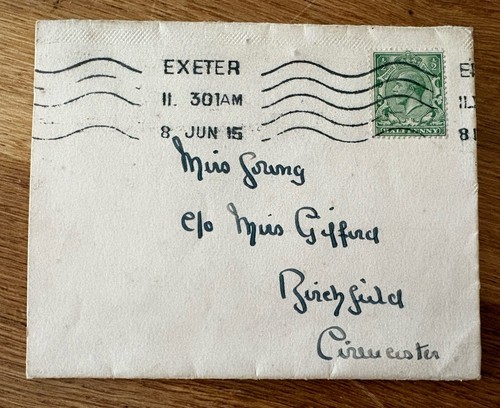 EXETER
11. 30 1AM
8 JUN 15
HALFPENNY
Miss Young
c/o Miss Gifford
Birchfield
Cirencester